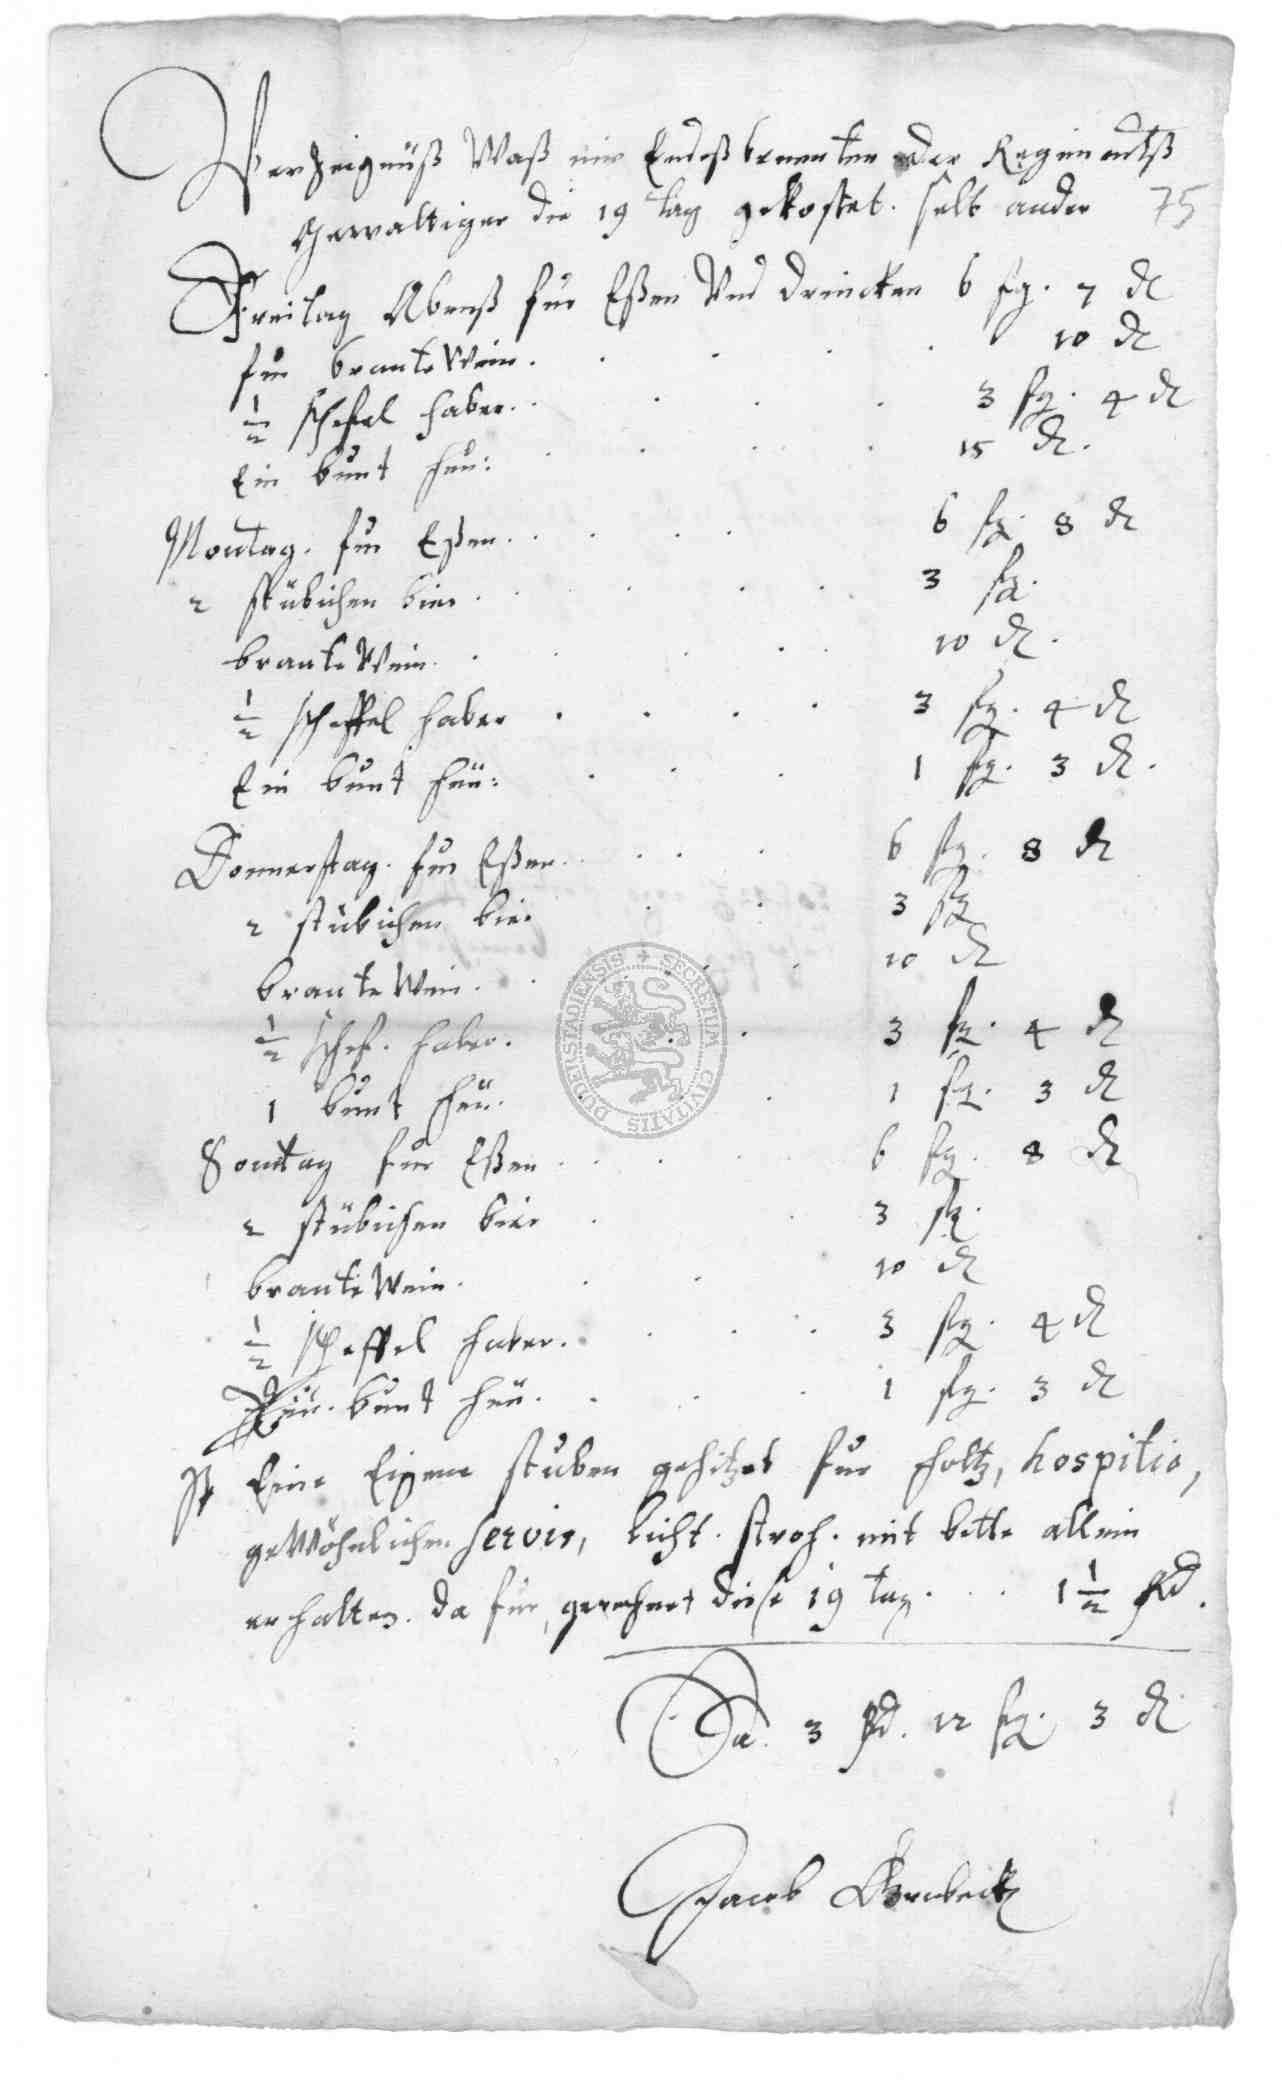 Verzeignüß Waß mir Endeß benenten der Regimentß
gewaltiger die 19 tag gekostet. selb ander 75
Freitag Abenß fur Eßen Vnd drincken 6 sg. 7 d
fur brante Wein. 10 d
1/2 schefel haber. 3 sg. 4 d
Ein bunt heu: 15 d.
Montag. fur Eßen. 6 sg. 8 d
2 stübichen bier. 3 sg.
brante Wein. 10 d.
1/2 scheffel haber 3 sg. 4 d
Ein bunt heü: 1 sg. 3 d.
Donnerstag. fur Eßen. 6 sg. 8 d
2 stübichen bier 3 sg
brante Wein. 10 d
1/2 schef. haber. 3 sg. 4 d
1 bunt heü. 1 sg. 3 d
SECRETUM CIVITATIS DUDERSTADIENSIS
Sontag fur Eßen 6 sg. 8 d
2 stübichen bier 3 sg.
brante Wein. 10 d
1/2 scheffel haber. 3 sg. 4 d
Ein. bunt heü. 1 sg. 3 d
It Eine Eigene stuben gehitzet fur holtz, hospitio,
geWöhnlichen servis, licht. stroh. mit bette allein
erhalten. da für, gerechnet diese 19 tag. 1 1/2 Rd.
Sa. 3 Rd. 12 sg. 3 d
Jacob